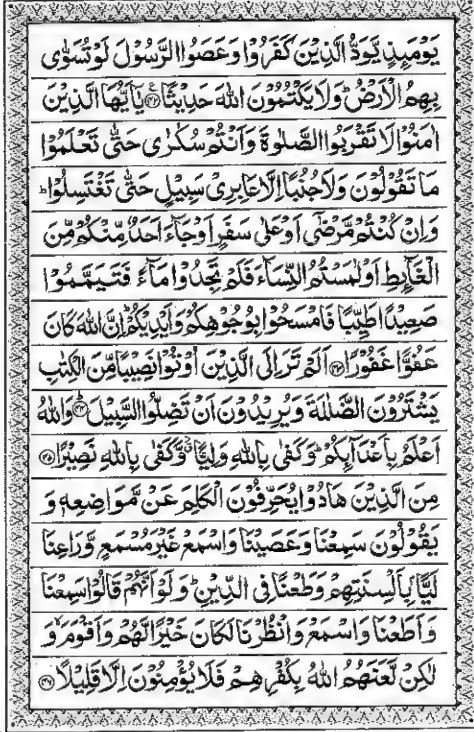 يَوْمَئِذٍ يَّوَدُّ الَّذِيْنَ كَفَرُوْا وَعَصَوُا الرَّسُوْلَ لَوْ تُسَوّٰى
بِهِمُ الْاَرْضُ ؕ وَلَا يَكْتُمُوْنَ اللّٰهَ حَدِيْثًا ﴿۴۲﴾ يٰۤاَيُّهَا الَّذِيْنَ
اٰمَنُوْا لَا تَقْرَبُوا الصَّلٰوةَ وَاَنْتُمْ سُكٰرٰى حَتّٰى تَعْلَمُوْا
مَا تَقُوْلُوْنَ وَلَا جُنُبًا اِلَّا عَابِرِيْ سَبِيْلٍ حَتّٰى تَغْتَسِلُوْا ؕ
وَاِنْ كُنْتُمْ مَّرْضٰۤى اَوْ عَلٰى سَفَرٍ اَوْ جَآءَ اَحَدٌ مِّنْكُمْ مِّنَ
الْغَآئِطِ اَوْ لٰمَسْتُمُ النِّسَآءَ فَلَمْ تَجِدُوْا مَآءً فَتَيَمَّمُوْا
صَعِيْدًا طَيِّبًا فَامْسَحُوْا بِوُجُوْهِكُمْ وَاَيْدِيْكُمْ ؕ اِنَّ اللّٰهَ كَانَ
عَفُوًّا غَفُوْرًا ﴿۴۳﴾ اَلَمْ تَرَ اِلَى الَّذِيْنَ اُوْتُوْا نَصِيْبًا مِّنَ الْكِتٰبِ
يَشْتَرُوْنَ الضَّلٰلَةَ وَيُرِيْدُوْنَ اَنْ تَضِلُّوا السَّبِيْلَ ؕ ﴿۴۴﴾ وَاللّٰهُ
اَعْلَمُ بِاَعْدَآئِكُمْ ؕ وَكَفٰى بِاللّٰهِ وَلِيًّا ۫ وَّكَفٰى بِاللّٰهِ نَصِيْرًا ﴿۴۵﴾
مِنَ الَّذِيْنَ هَادُوْا يُحَرِّفُوْنَ الْكَلِمَ عَنْ مَّوَاضِعِهٖ وَ
يَقُوْلُوْنَ سَمِعْنَا وَعَصَيْنَا وَاسْمَعْ غَيْرَ مُسْمَعٍ وَّرَاعِنَا
لَيًّا بِاَلْسِنَتِهِمْ وَطَعْنًا فِى الدِّيْنِ ؕ وَلَوْ اَنَّهُمْ قَالُوْا سَمِعْنَا
وَاَطَعْنَا وَاسْمَعْ وَانْظُرْنَا لَكَانَ خَيْرًا لَّهُمْ وَاَقْوَمَ ۙ وَ
لٰكِنْ لَّعَنَهُمُ اللّٰهُ بِكُفْرِهِمْ فَلَا يُؤْمِنُوْنَ اِلَّا قَلِيْلًا ﴿۴۶﴾